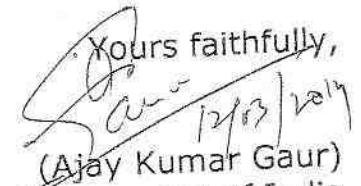 Yours faithfully,
12/03/2014
(Ajay Kumar Gaur)